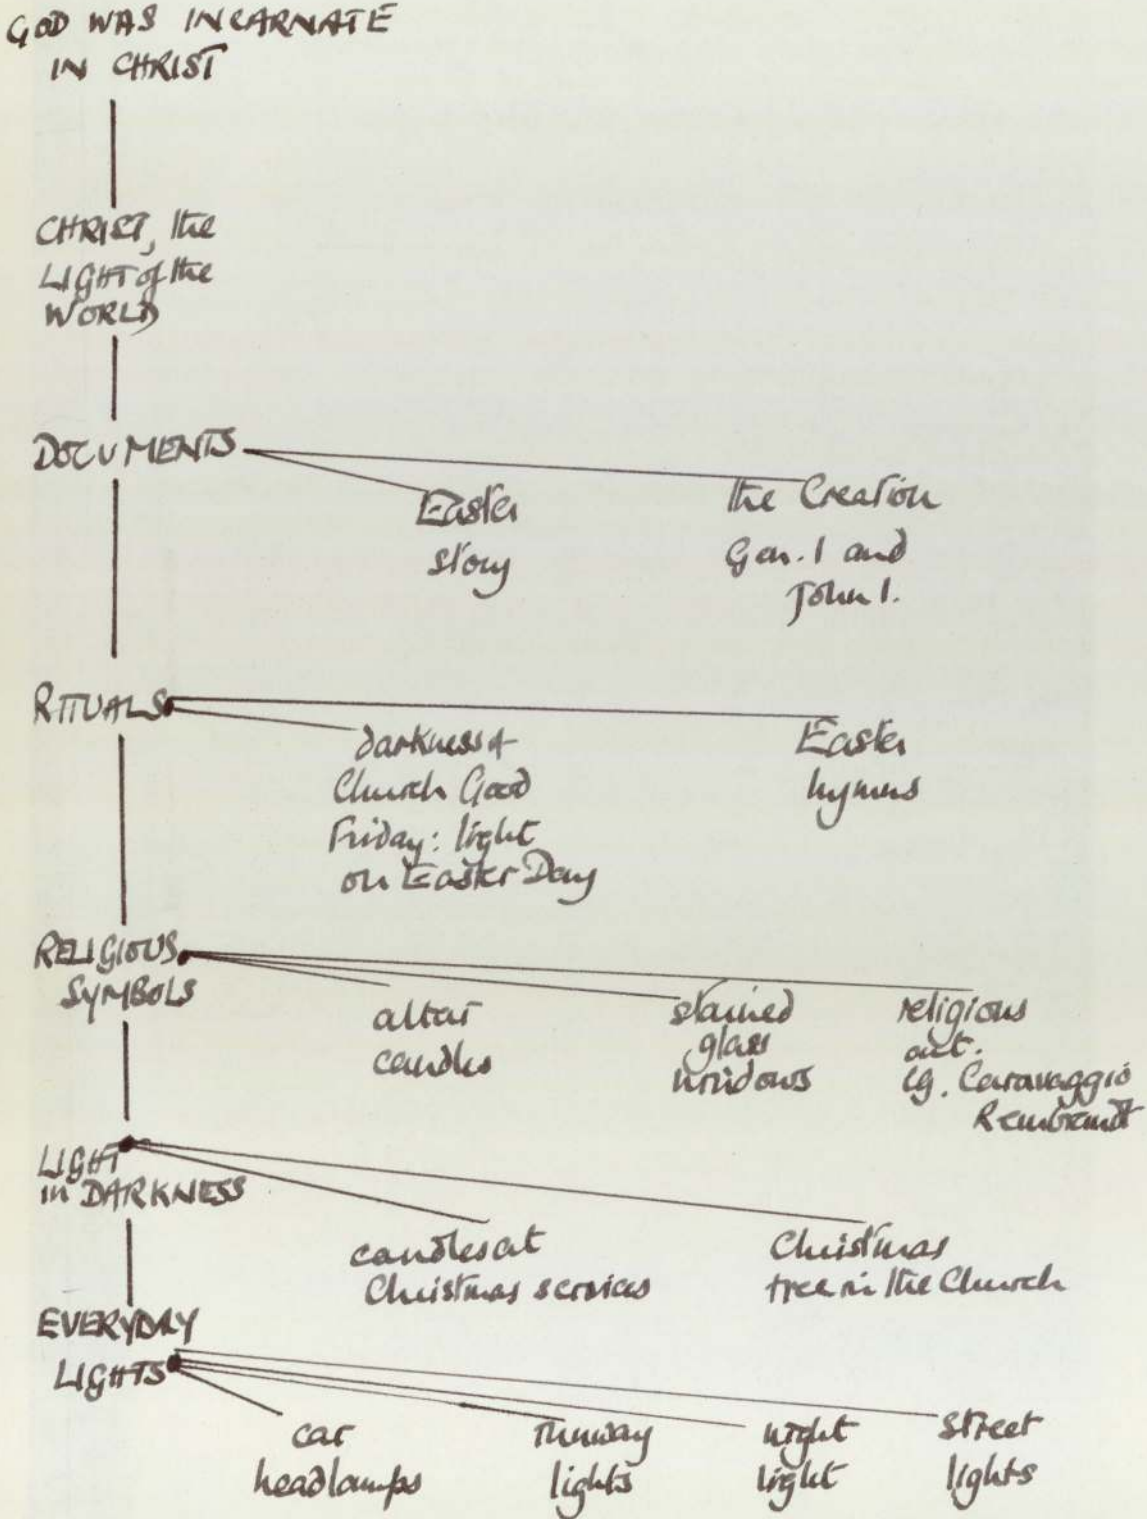 GOD WAS INCARNATE
IN CHRIST
CHRIST, the
LIGHT of the
WORLD
DOCUMENTS
Easter
story
the Creation
Gen. 1 and
John 1.
RITUALS
darkness of
Church Good
Friday: light
on Easter Day
Easter
hymns
RELIGIOUS
SYMBOLS
altar
candles
stained
glass
windows
religious
art.
eg. Caravaggio
Rembrandt
LIGHT
in DARKNESS
candles at
Christmas services
Christmas
tree in the Church
EVERYDAY
LIGHTS
car
headlamps
runway
lights
night
light
street
lights